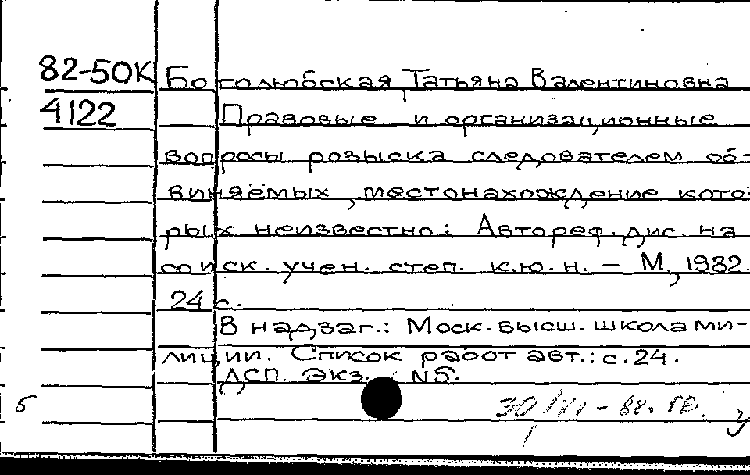 82-50К Боголюбская Татьяна Валентиновна
4122 Правовые и организационные
вопросы розыска следователем об-
виняемых, местонахождение кото-
рых неизвестно: Автореф. дис. на
соиск. учен. степ. к.ю.н. – М., 1982.
24 с.
В надзаг.: Моск. высш. школа ми-
лиции. Список работ авт.: с. 24.
ДСП. Экз. №5.
5